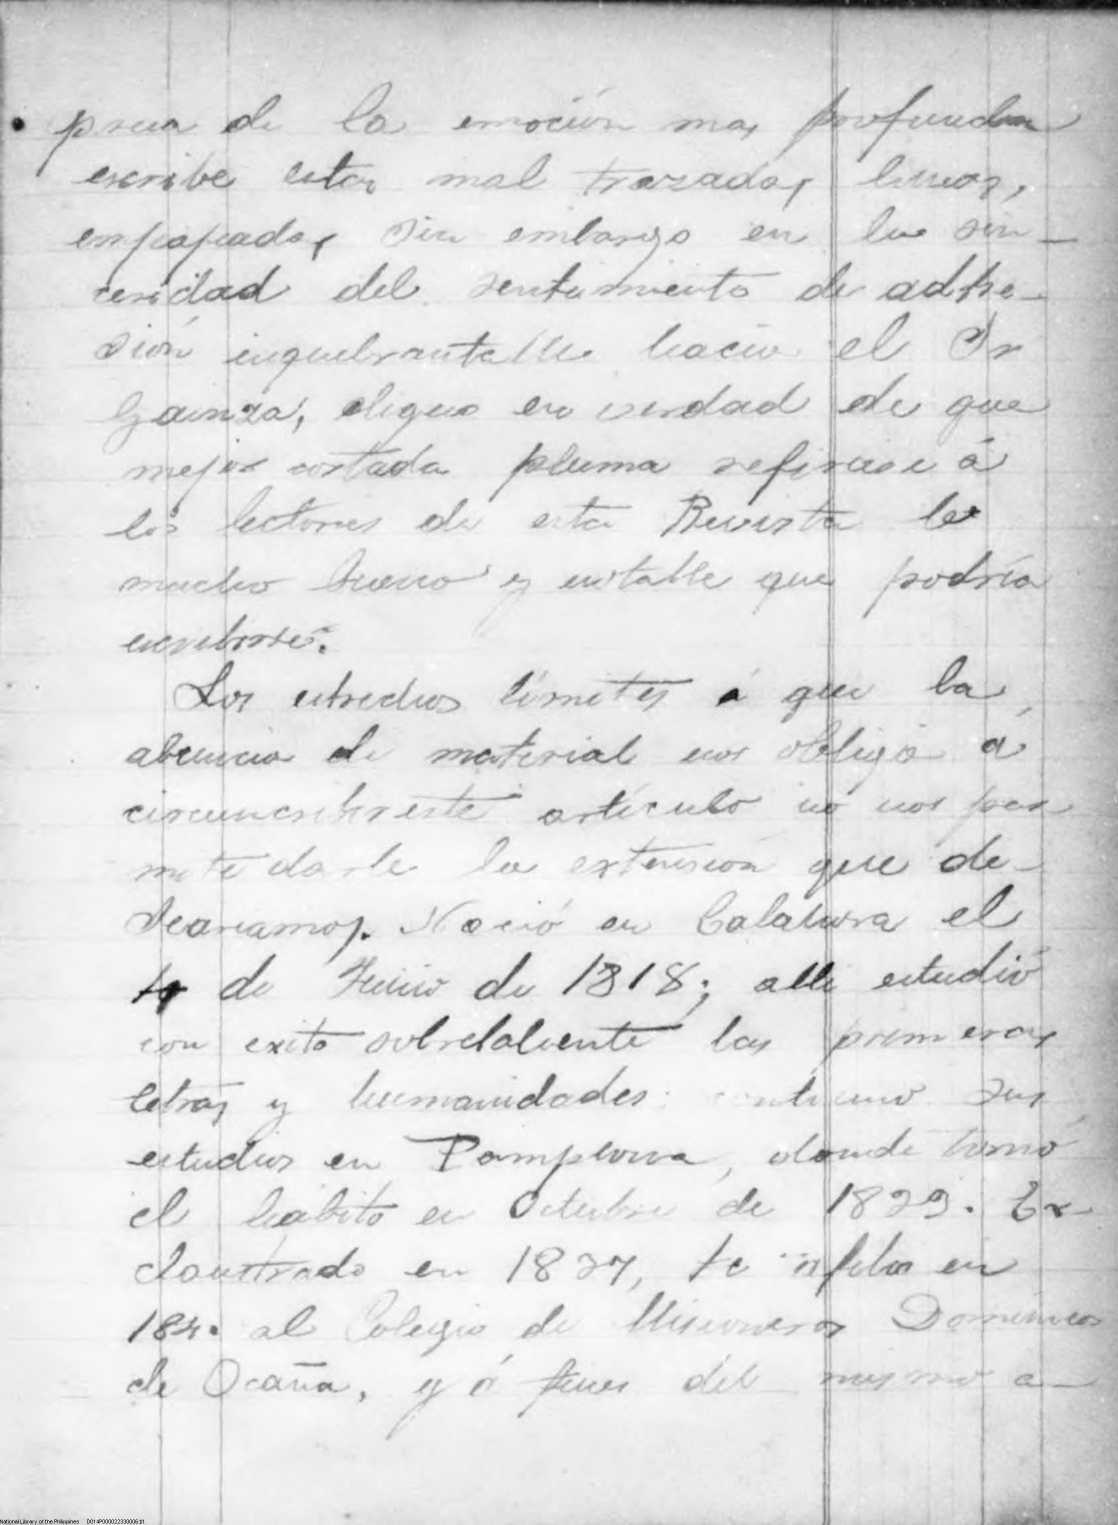 presa de la emoción mas profunda
escribe estas mal trazadas lineas,
empapadas sin embargo en la sin-
ceridad del sentimiento de adhe-
sión inquebrantable hacia el Sr
Gainza, digno en verdad de que
mejor cortada pluma refiriese á
los lectores de esta Revista lo
mucho bueno y notable que podría
escribirse.
Los estrechos límites á que la
abuncia de material nos obliga á
circunscribir este artículo no nos per
mite darle la extension que de-
seariamos. Nació en Calahorra el
4 de Junio de 1818; alli estudió
con exito sobresaliente las primeras
letras y humanidades: continuo sus
estudios en Pamplona, donde tomó
el habito en Octubre de 1833. Ex-
claustrado en 1837, se en
184. al Colegio de Misioneros Domínicos
de Ocaña, y á fines del mismo a-
National Library of the Philippines D014P000022330006.tif